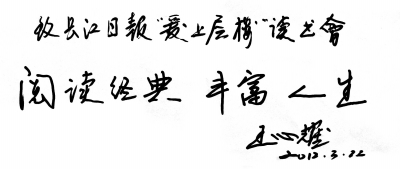 致长江日报“爱上层楼”读书會
阅读经典 丰富人生
王心耀
2012.3.22